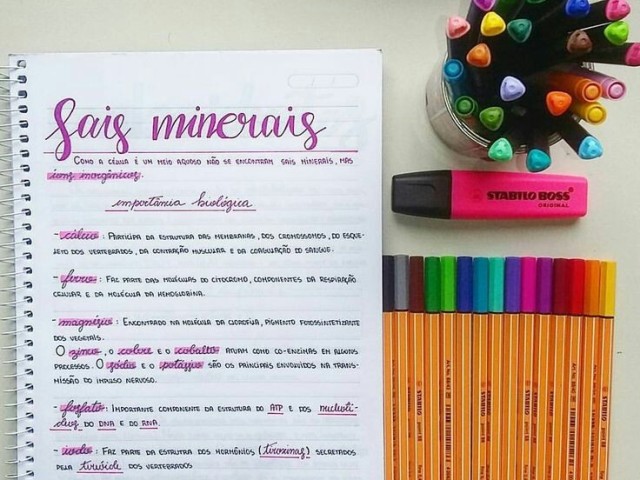 Sais minerais
COMO A CÉLULA É UM MEIO AQUOSO NÃO SE ENCONTRAM SAIS MINERAIS, MAS
íons inorgânicos.
importância biológica
- cálcio: PARTICIPA DA ESTRUTURA DAS MEMBRANAS, DOS CROMOSSOMOS, DO ESQUE-
LETO DOS VERTEBRADOS, DA CONTRAÇÃO MUSCULAR E DA COAGULAÇÃO DO SANGUE.
- ferro: FAZ PARTE DAS MOLÉCULAS DO CITOCROMO, COMPONENTES DA RESPIRAÇÃO
CELULAR E DA MOLÉCULA DA HEMOGLOBINA.
- magnésio: ENCONTRADO NA MOLÉCULA DA CLOROFILA, PIGMENTO FOTOSSINTETIZANTE
DOS VEGETAIS.
O zinco, o cobre E O cobalto ATUAM COMO CO-ENZIMAS EM ALGUNS
PROCESSOS. O sódio E O potássio SÃO OS PRINCIPAIS ENVOLVIDOS NA TRANS-
MISSÃO DO IMPULSO NERVOSO.
- fosfato: IMPORTANTE COMPONENTE DA ESTRUTURA DO ATP E DOS nucleotí-
deos DO DNA E DO RNA.
- iodo: FAZ PARTE DA ESTRUTRA DOS HORMÔNIOS (tiroxinas) SECRETADOS
PELA tireóide DOS VERTEBRADOS
STABILO BOSS
ORIGINAL